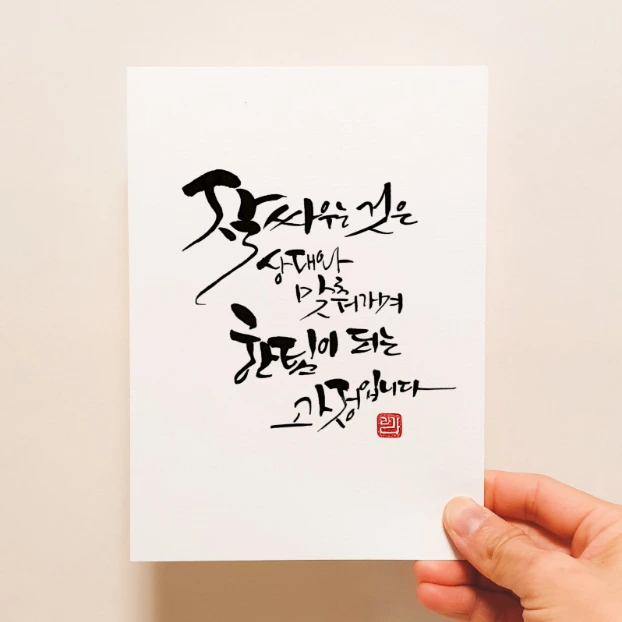 잘 싸우는 것은
상대와
맞춰가며
한팀이 되는
과정입니다